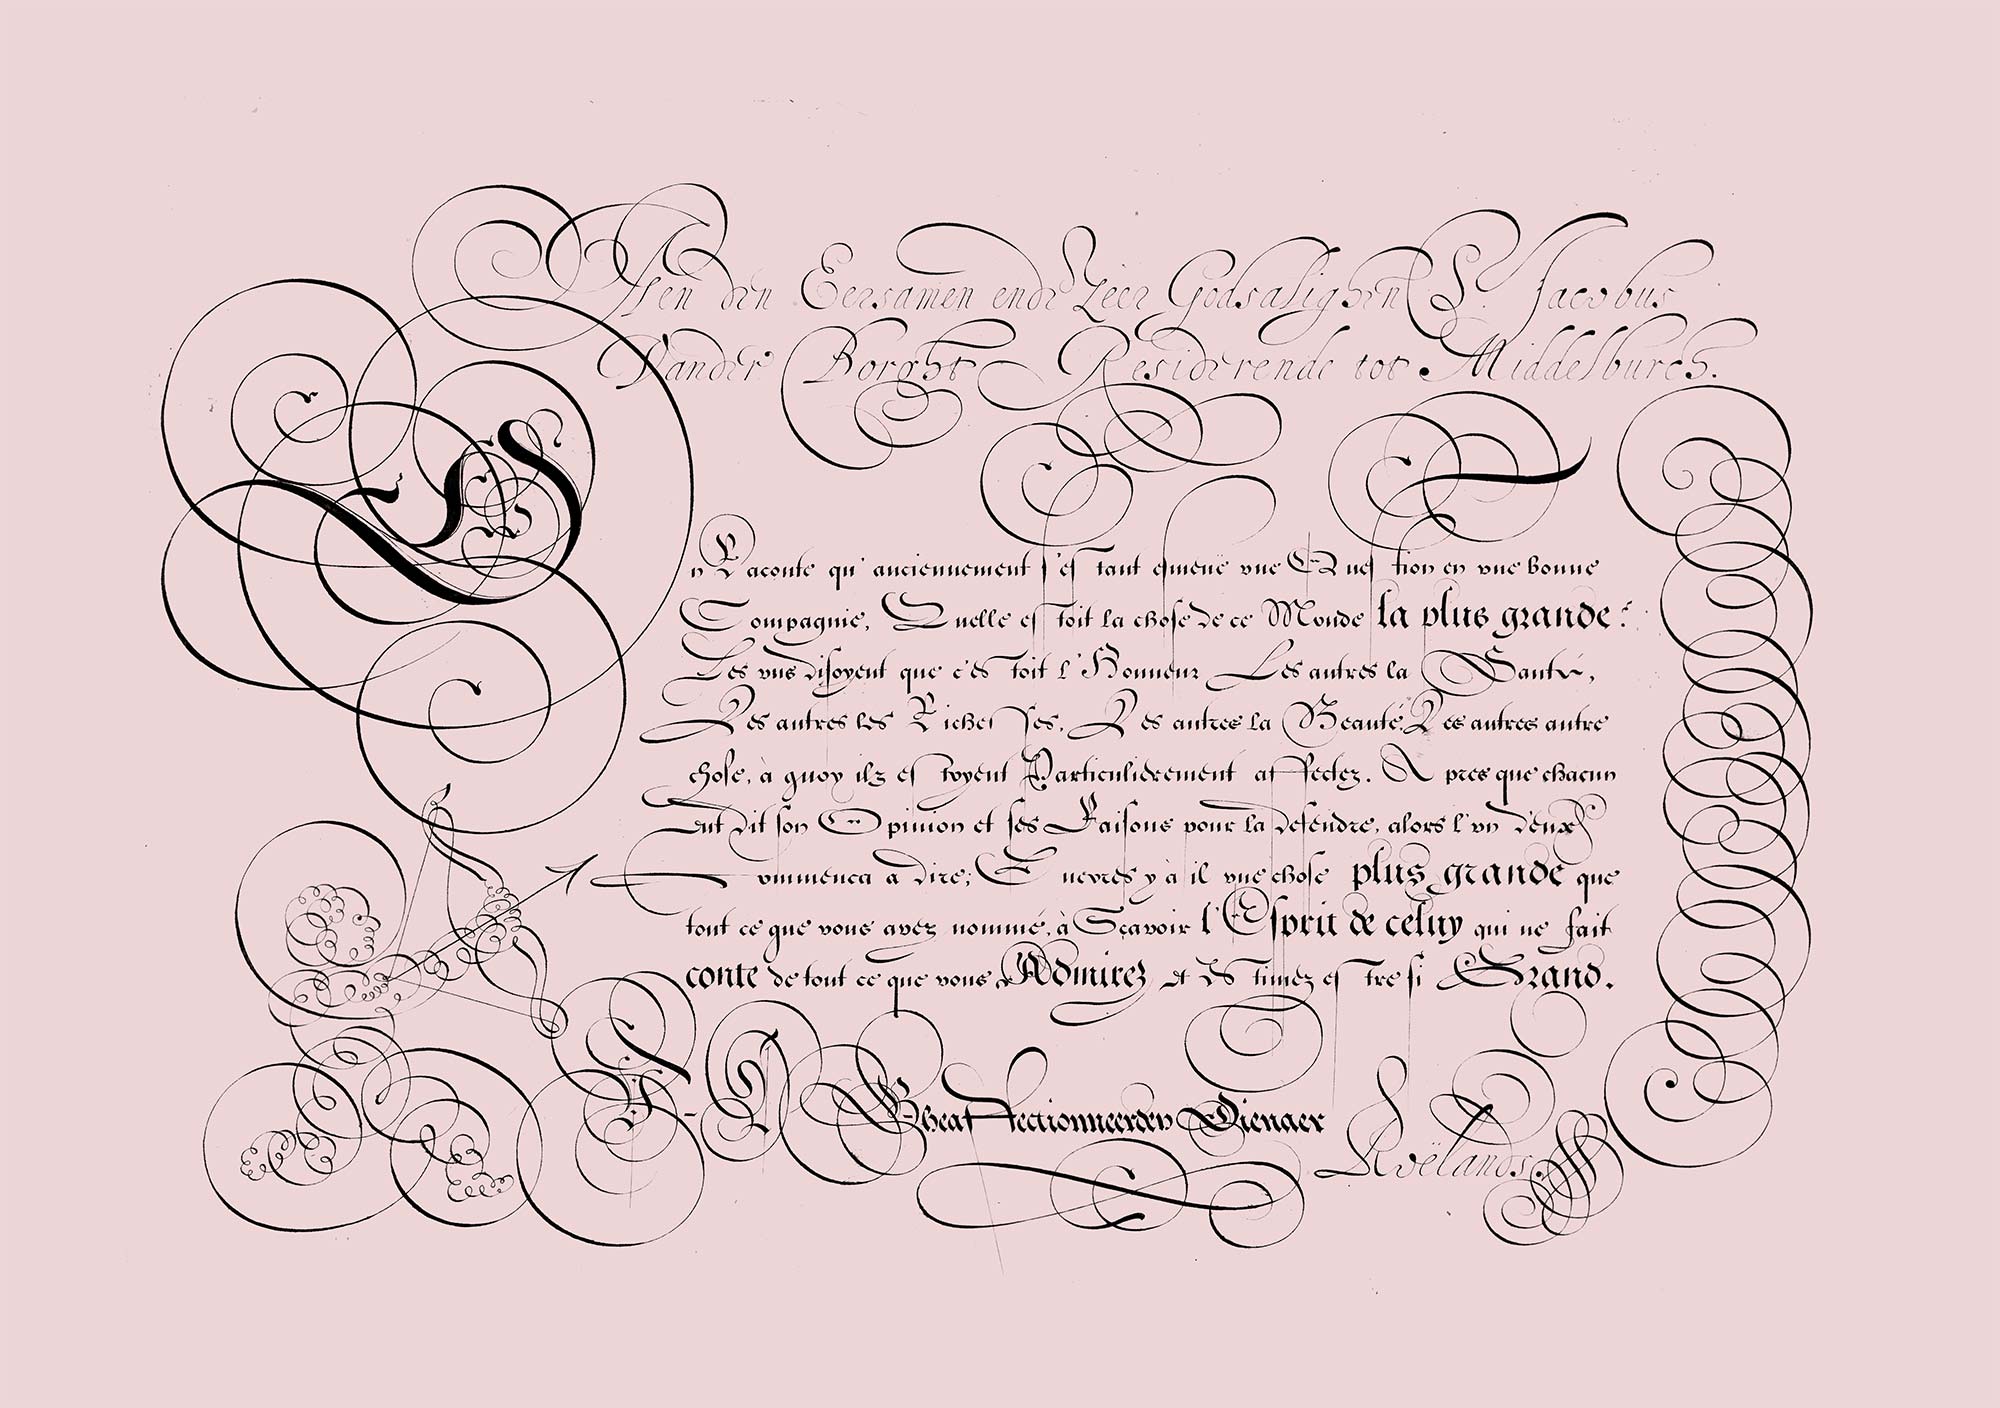 Aen den Eersamen ende Zeer Godsalighen S.r Jacobus
Vander Borght Residerende tot Middelburch.
On Raconte qu'anciennement s'est tant esmeuë vne Question en vne bonne
Compagnie, Quelle estoit la chose de ce Monde la plus grande?
Les vns disoyent que c'estoit l'Honneur Les autres la Santé,
Les autres les Richesses, Les autres la Beauté, Les autres autre
chose, à quoy ilz estoyent Particulierement affectez. Apres que chacun
eut dit son Opinion et ses Raisons pour la defendre, alors l'vn d'eux
Commenca a dire; Encores y à il vne chose plus grande que
tout ce que vous avez nommé, à Sçavoir l'Esprit de celuy qui ne fait
conte de tout ce que vous Admirez et Estimez estre si Grand.
Gheaffectionneerden Dienaer
Roelands.